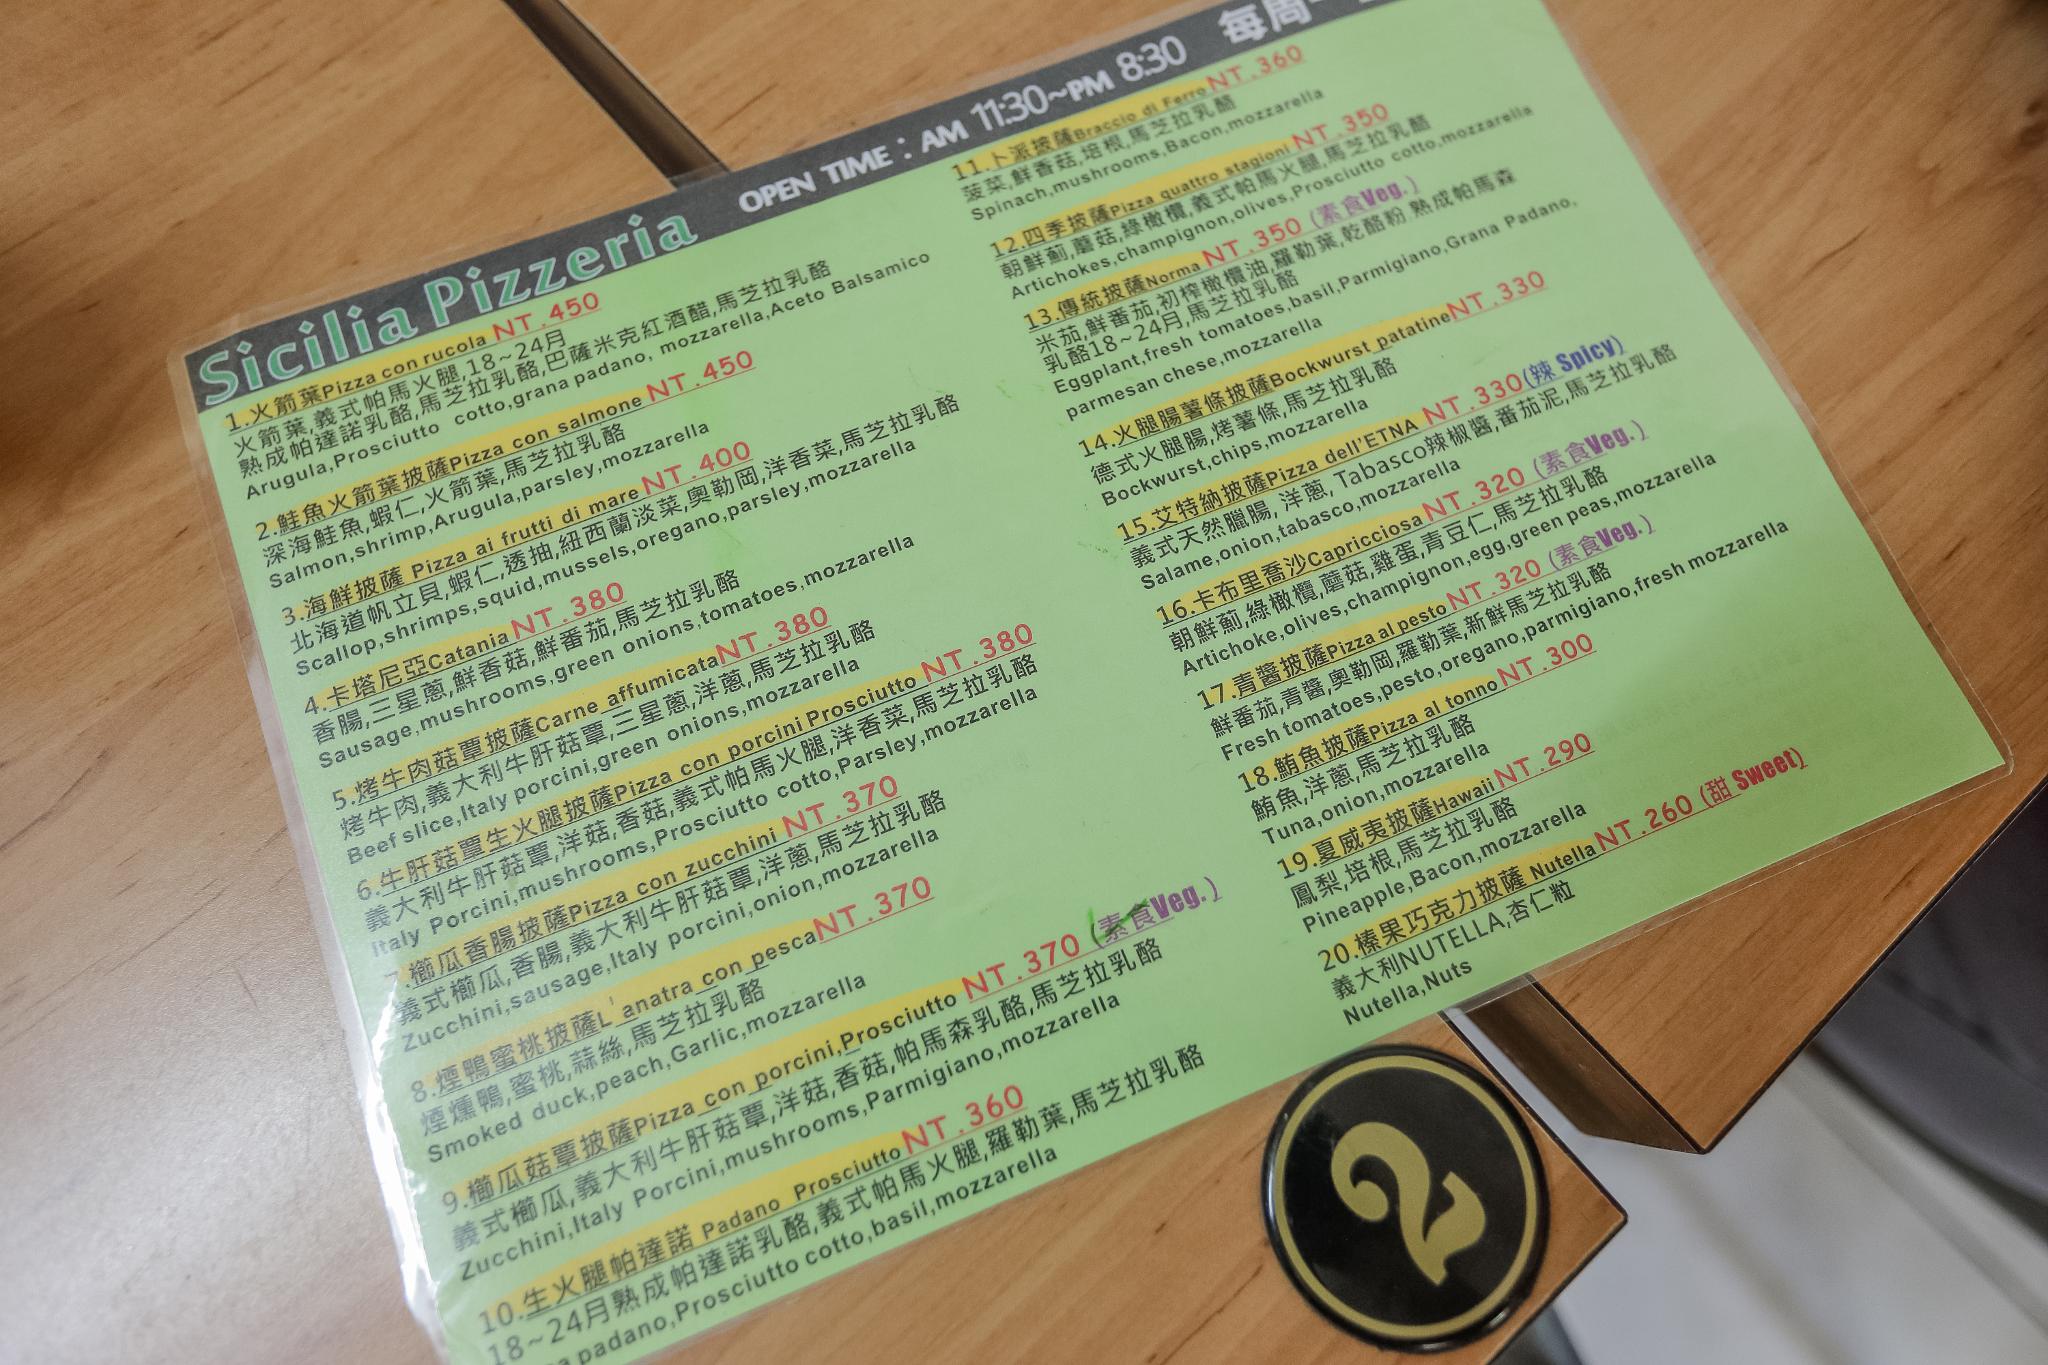 Sicilia Pizzeria OPEN TIME：AM 11:30~PM 8:30 每周
1.火箭葉Pizza con rucola NT.450
火箭葉,義式帕馬火腿,18~24月
熟成帕達諾乳酪,馬芝拉乳酪,巴薩米克紅酒醋,馬芝拉乳酪
Arugula,Prosciutto cotto,grana padano, mozzarella,Aceto Balsamico
2.鮭魚火箭葉披薩Pizza con salmone NT.450
深海鮭魚,蝦仁,火箭葉,馬芝拉乳酪
Salmon,shrimp,Arugula,parsley,mozzarella
3.海鮮披薩 Pizza ai frutti di mare NT.400
北海道帆立貝,蝦仁,透抽,紐西蘭淡菜,奧勒岡,洋香菜,馬芝拉乳酪
Scallop,shrimps,squid,mussels,oregano,parsley,mozzarella
4.卡塔尼亞Catania NT.380
香腸,三星蔥,鮮香菇,鮮番茄,馬芝拉乳酪
Sausage,mushrooms,green onions,tomatoes,mozzarella
5.烤牛肉菇蕈披薩Carne affumicata NT.380
烤牛肉,義大利牛肝菇蕈,三星蔥,洋蔥,馬芝拉乳酪
Beef slice,Italy porcini,green onions,mozzarella
6.牛肝菇蕈生火腿披薩Pizza con porcini Prosciutto NT.380
義大利牛肝菇蕈,洋菇,香菇,義式帕馬火腿,洋香菜,馬芝拉乳酪
Italy Porcini,mushrooms,Prosciutto cotto,Parsley,mozzarella
7.櫛瓜香腸披薩Pizza con zucchini NT.370
義式櫛瓜,香腸,義大利牛肝菇蕈,洋蔥,馬芝拉乳酪
Zucchini,sausage,Italy porcini,onion,mozzarella
8.煙鴨蜜桃披薩L' anatra con pesca NT.370
煙燻鴨,蜜桃,蒜絲,馬芝拉乳酪
Smoked duck,peach,Garlic,mozzarella
9.櫛瓜菇蕈披薩Pizza con porcini,Prosciutto NT.370 (素食Veg.)
義式櫛瓜,義大利牛肝菇蕈,洋菇,香菇,帕馬森乳酪,馬芝拉乳酪
Zucchini,Italy Porcini,mushrooms,Parmigiano,mozzarella
10.生火腿帕達諾 Padano Prosciutto NT.360
18~24月熟成帕達諾乳酪,義式帕馬火腿,羅勒葉,馬芝拉乳酪
padano,Prosciutto cotto,basil,mozzarella
11.卜派披薩Braccio di Ferro NT.360
菠菜,鮮香菇,培根,馬芝拉乳酪
Spinach,mushrooms,Bacon,mozzarella
12.四季披薩Pizza quattro stagioni NT.350
朝鮮薊,蘑菇,綠橄欖,義式帕馬火腿,馬芝拉乳酪
Artichokes,champignon,olives,Prosciutto cotto,mozzarella
13.傳統披薩Norma NT.350 (素食Veg.)
米茄,鮮番茄,初榨橄欖油,羅勒葉,乾酪粉 熟成帕馬森
乳酪18~24月,馬芝拉乳酪
Eggplant,fresh tomatoes,basil,Parmigiano,Grana Padano,
parmesan chese,mozzarella
14.火腿腸薯條披薩Bockwurst patatine NT.330
德式火腿腸,烤薯條,馬芝拉乳酪
Bockwurst,chips,mozzarella
15.艾特納披薩Pizza dell'ETNA NT.330(辣 Spicy)
義式天然臘腸, 洋蔥, Tabasco辣椒醬,番茄泥,馬芝拉乳酪
Salame,onion,tabasco,mozzarella
16.卡布里喬沙Capricciosa NT.320 (素食Veg.)
朝鮮薊,綠橄欖,蘑菇,雞蛋,青豆仁,馬芝拉乳酪
Artichoke,olives,champignon,egg,green peas,mozzarella
17.青醬披薩Pizza al pesto NT.320 (素食Veg.)
鮮番茄,青醬,奧勒岡,羅勒葉,新鮮馬芝拉乳酪
Fresh tomatoes,pesto,oregano,parmigiano,fresh mozzarella
18.鮪魚披薩Pizza al tonno NT.300
鮪魚,洋蔥,馬芝拉乳酪
Tuna,onion,mozzarella
19.夏威夷披薩Hawaii NT.290
鳳梨,培根,馬芝拉乳酪
Pineapple,Bacon,mozzarella
20.榛果巧克力披薩 Nutella NT.260 (甜 Sweet)
義大利NUTELLA,杏仁粒
Nutella,Nuts
2